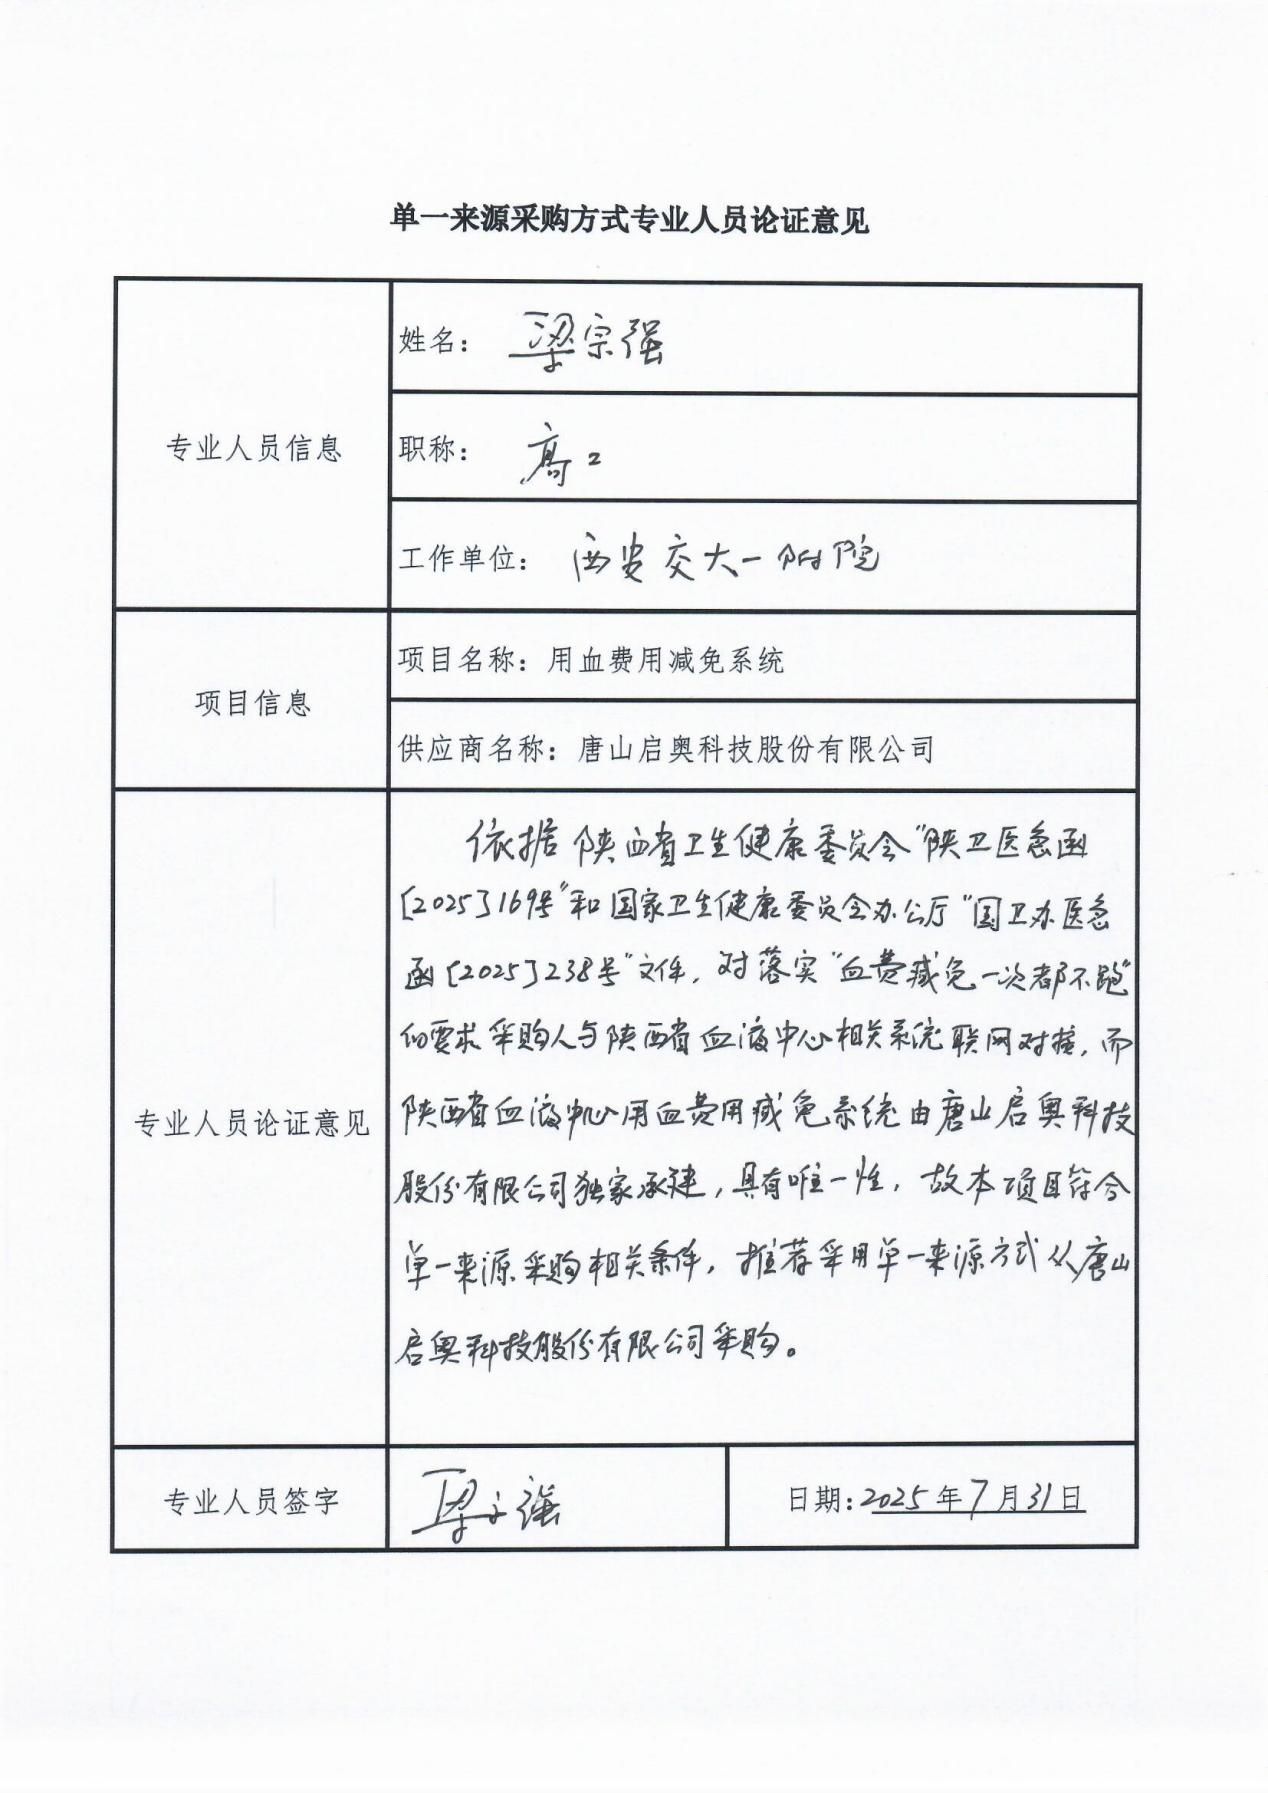 单一来源采购方式专业人员论证意见
专业人员信息
姓名：梁宗强
职称：高工
工作单位：西安交大一附院
项目信息
项目名称：用血费用减免系统
供应商名称：唐山启奥科技股份有限公司
专业人员论证意见
依据陕西省卫生健康委员会“陕卫医急函
〔2025〕169号”和国家卫生健康委员会办公厅“国卫办医急
函〔2025〕238号”文件，对落实“血费减免一次都不跑”
的要求采购人与陕西省血液中心相关系统联网对接，而
陕西省血液中心用血费用减免系统由唐山启奥科技
股份有限公司独家承建，具有唯一性，故本项目符合
单一来源采购相关条件，推荐采用单一来源方式从唐山
启奥科技股份有限公司采购。
专业人员签字
梁宗强
日期：2025年7月31日